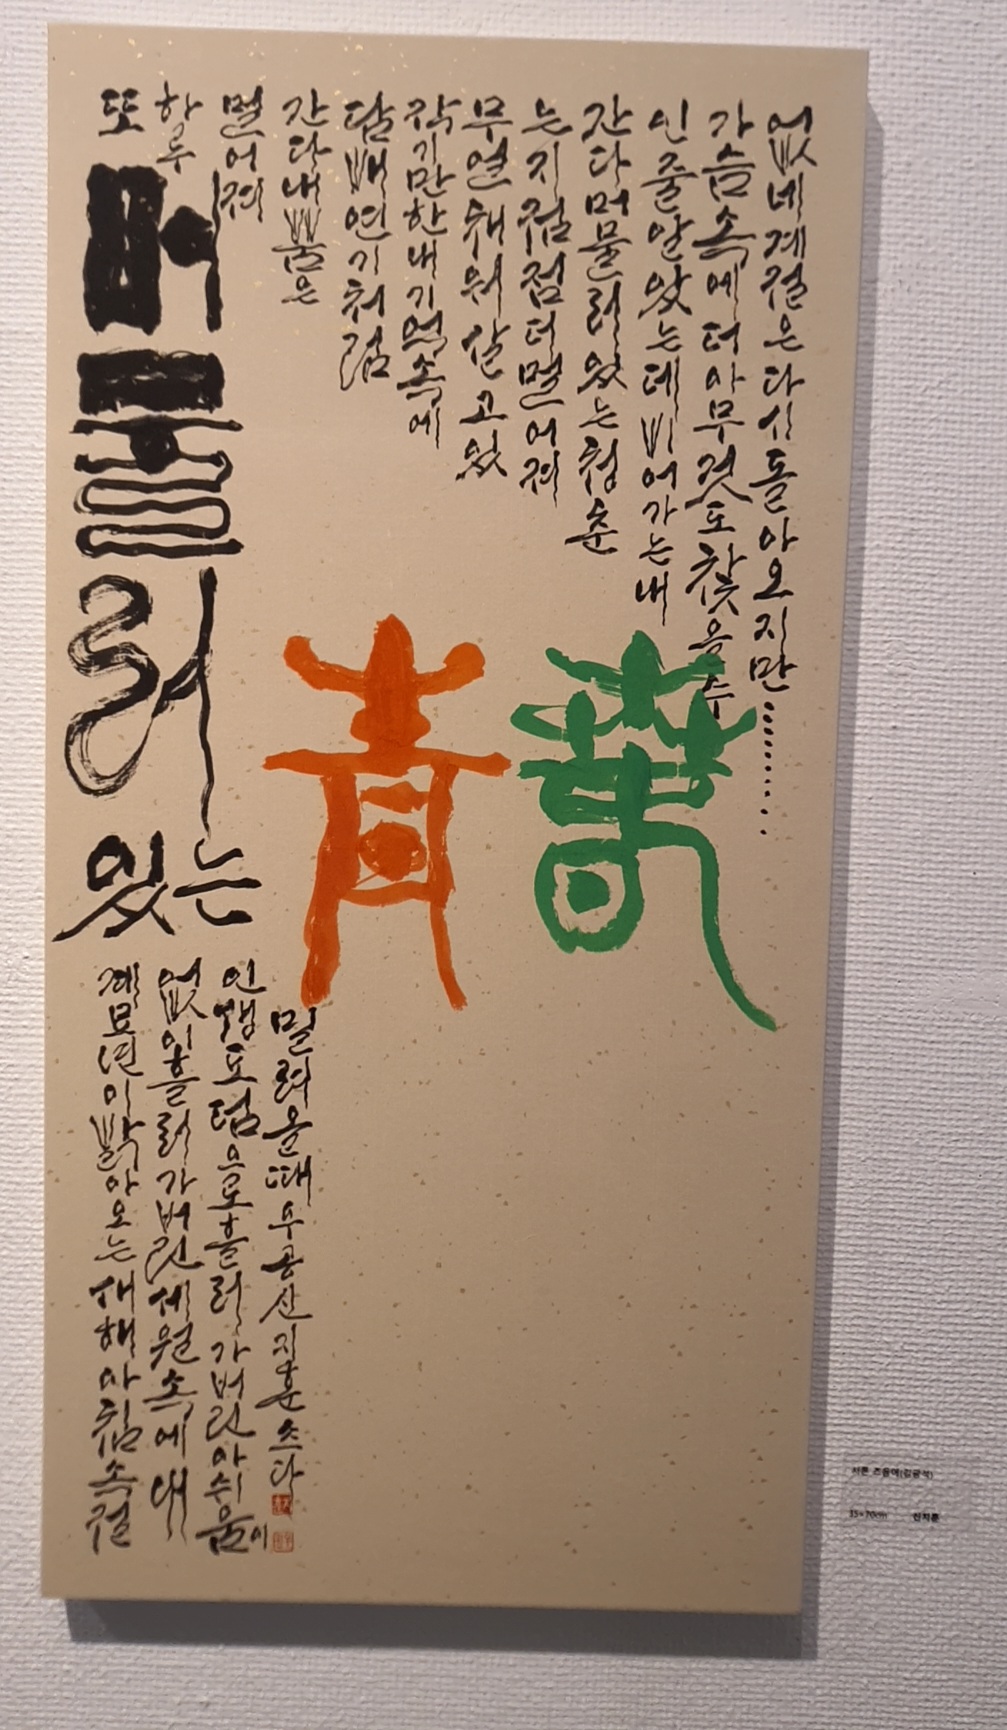 또
하루
멀어져
간다내뿜은
담배연기처럼
작기만한내기억속에
무얼채워살고있
는지점점더멀어져
간다머물러있는청춘
인줄알았는데비어가는내
가슴속에더아무것도찾을수
없네계절은다시돌아오지만.........
머물러
있는
靑春
계묘년이밝아오는새해아침속절
없이흘러가버린세월속에내
인생도덤으로흘러가버린아쉬움이
밀려올때우공신지훈쓰다
서른 즈음에(김광석)
35×70cm 신지훈